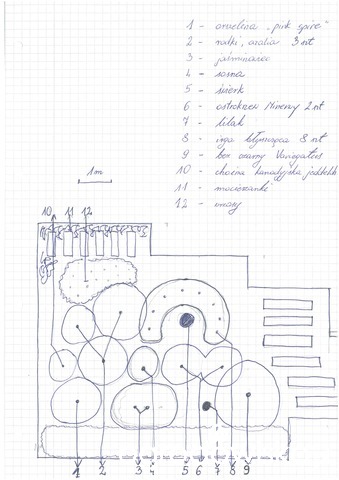 1 - „pink spire"
2 - rodki, azalia 3 szt
3 - jaśminowiec
4 - sosna
5 - świerk
6 - ostrokrzew 2 szt
7 - lilak
8 - irga błyszcząca 8 szt
9 - bez czarny
10 - choina kanadyjska
11 - macierzanki
12 - wrzosy
1m
10 11 12
1 2 3 4 5 6 7 8 9